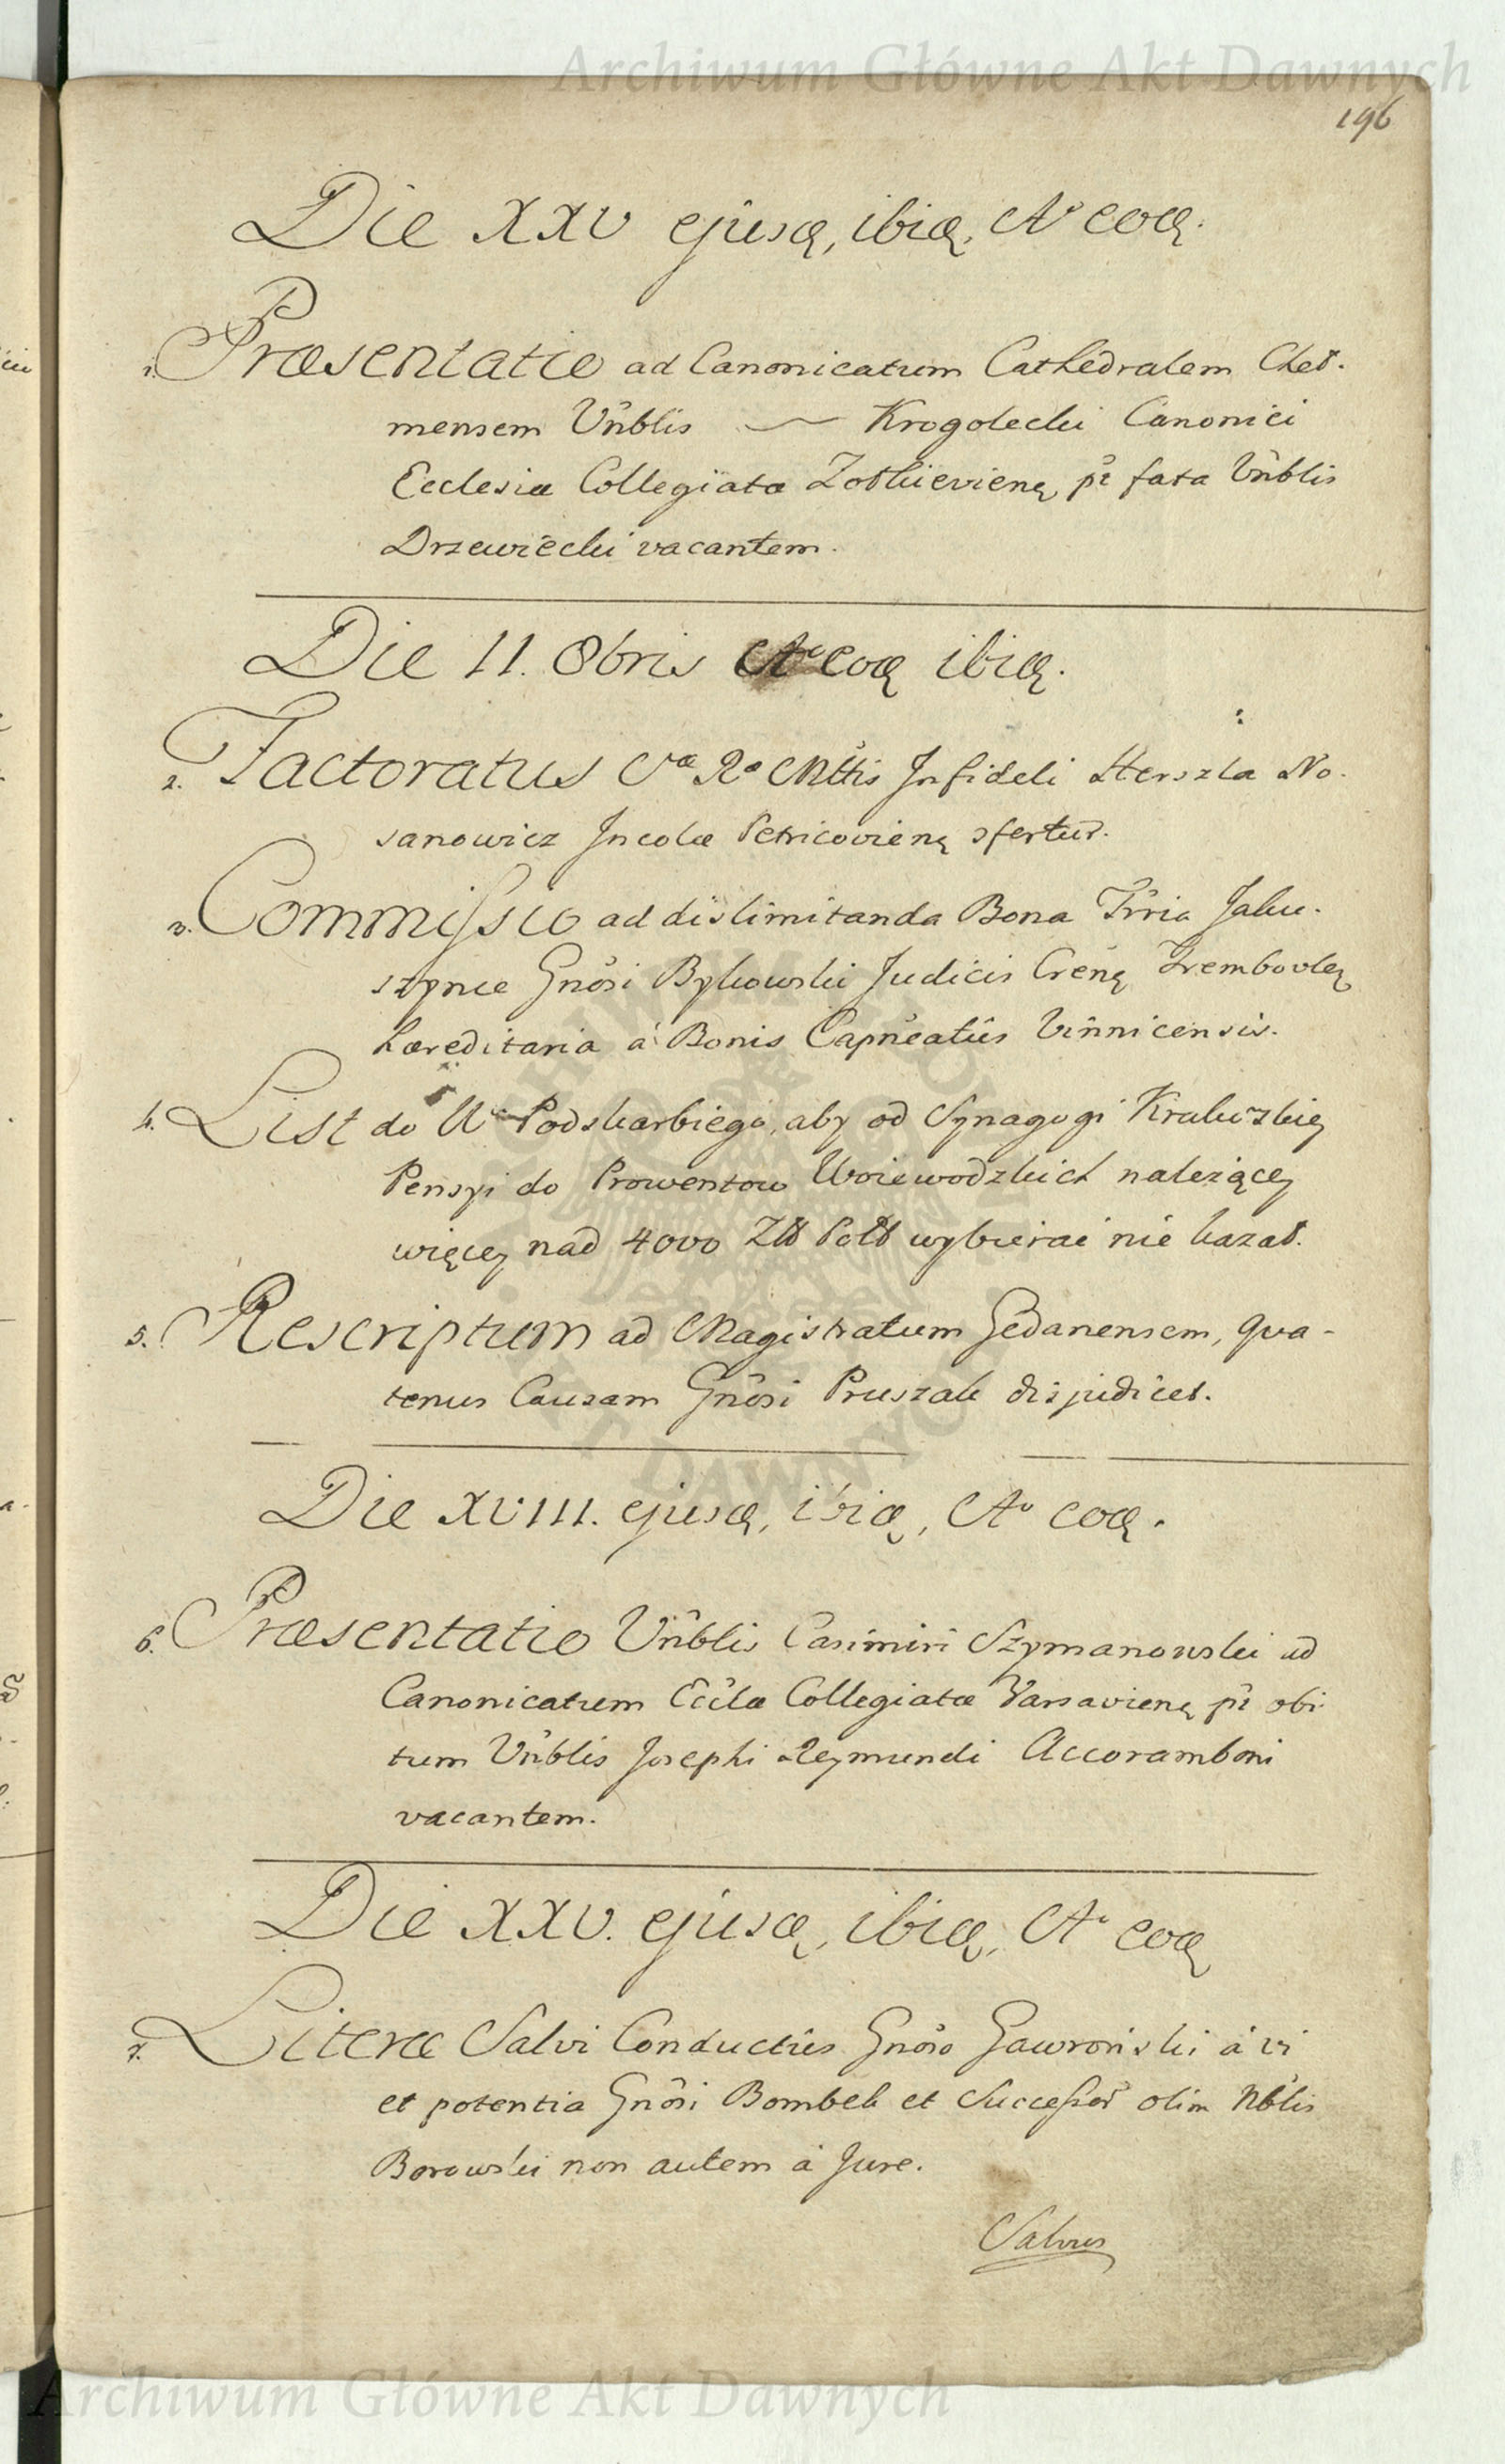 Archiwum Główne Akt Dawnych
196
Die XXV ejusđ, ibiđ, Aº eođ.
1. Præsentatio ad Canonicatum Cathedralem Cheł.
mensem Vnblis — Krogolecki Canonici
Ecclesiæ Collegiatæ Zołkieviene, pt fata Vnblis
Drzewiecki vacantem.
Die 11. 8bris Aº eođ ibiđ.
2. Factoratus Sæ Ræ Mttis Infideli Herszla No.
sanowicz Incolæ Petricoviene sfertur.
3. Commissio ad dislimitanda Bona Trria Jaku.
szynce Gnosi Bykowski Judicis Crene Trembovle
hæreditaria à Bonis Capneatus Vinnicensis.
4. List do Wº Podskarbiego, aby od Synagogi Krakowskiey
Pensyi do Prowentow Woiewodzkich należącey
więcey nad 4000 Złł Poll wybierać nie kazał.
5. Rescriptum ad Magistratum Gedanensem, qva-
tenus Causam Gnosi Pruszak disjudicet.
Die XVIII. ejusđ, ibiđ, Aº eođ.
6. Præsentatio Vnblis Casimiri Szymanowski ad
Canonicatum Ecclæ Collegiatæ Varsaviene pt obi-
tum Vnblis Josephi Reymundi Accoramboni
vacantem.
Die XXV. ejusđ, ibiđ, Aº eođ
7. Literæ Salvi Conductus Gnoso Gawroński à vi
et potentia Gnosi Bombek et Successor olim Nblis
Borowski non autem à Jure.
Salvus
Archiwum Główne Akt Dawnych